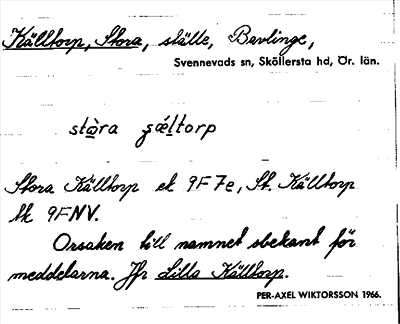 Källtorp, Stora, ställe, Bavlinge,
Svennevads sn, Sköllersta hd, Ör. län.
stòra s̨æltorp
Stora Källtorp ek 9F7e, St. Källtorp
tk 9FNV.
Orsaken till namnet obekant för
meddelarna. Jfr Lilla Källtorp.
PER-AXEL WIKTORSSON 1966.